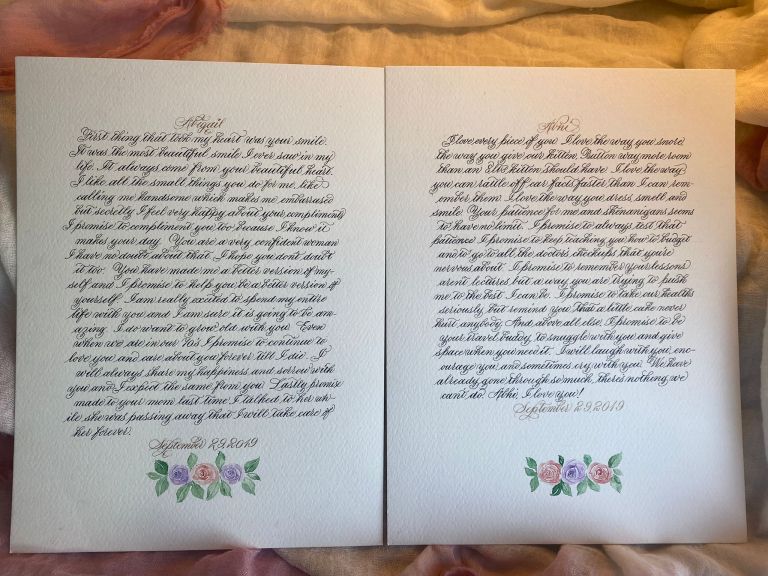 Abigail
First thing that took my heart was your smile.
It was the most beautiful smile I ever saw in my
life. It always come from your beautiful heart.
I like all the small things you do for me, like
calling me handsome which makes me embarrased
but secretly I feel very happy about your compliments
I promise to compliment you too because I know it
makes your day. You are a very confident woman
I have no doubt about that. I hope you dont doubt
it too. You have made me a better version of my-
self and I promise to help you be a better version of
yourself. I am really excited to spend my entire
life with you and I am sure it is going to be am-
azing. I do want to grow old with you. Even
when we are in our 90s I promise to continue to
love you and care about you forever till I die. I
will always share my happiness and sorrow with
you and I expect the same from you. Lastly promise
made to your mom last time I talked to her wh-
ile she was passing away that I will take care of
her forever.
September 29, 2019
Abhi
I love every piece of you. I love the way you snore,
the way you give our kitten, way more room
than an 8lbs kitten should have. I love the way
you can rattle off car facts faster than I can rem-
ember them. I love the way you dress, smell and
smile. Your patience for me and shenanigans seems
to have no limit. I promise to always test that
patience. I promise to keep teaching you how to budget
and to go to all the doctors checkups that you're
nervous about. I promise to remember your lessons
arent lectures but a way you are trying to push
me to the best I can be. I promise to take our healths
seriously, but remind you that a little cake never
hurt anybody. And above all else, I promise to be
your travel buddy, to snuggle with you and give
space when you need it. I will laugh with you, enc-
ourage you and sometimes cry with you. We have
already gone through so much, there's nothing we
can't do. Abhi, I love you!
September 29, 2019